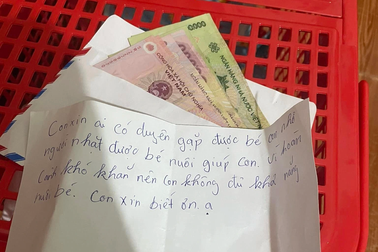 NGÂN HÀNG NHÀ NƯỚC VIỆT
CỘNG HÒA XÃ HỘI CHỦ NGHĨA
VIỆT NAM
Con xin ai có duyên gặp được bé
người nhặt được bé nuôi giúp con. Vì hoàn
cảnh khó khăn nên con không đủ khả năng
nuôi bé. Con xin biết ơn ạ